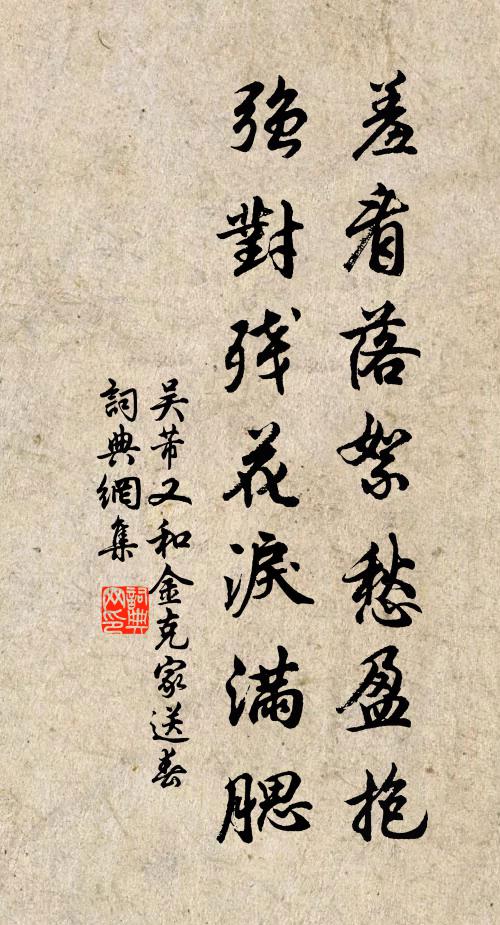 羞看落絮愁盈抱
强對残花淚满腮
吴芾又和金克家送春
詞典網集
詞典
网印